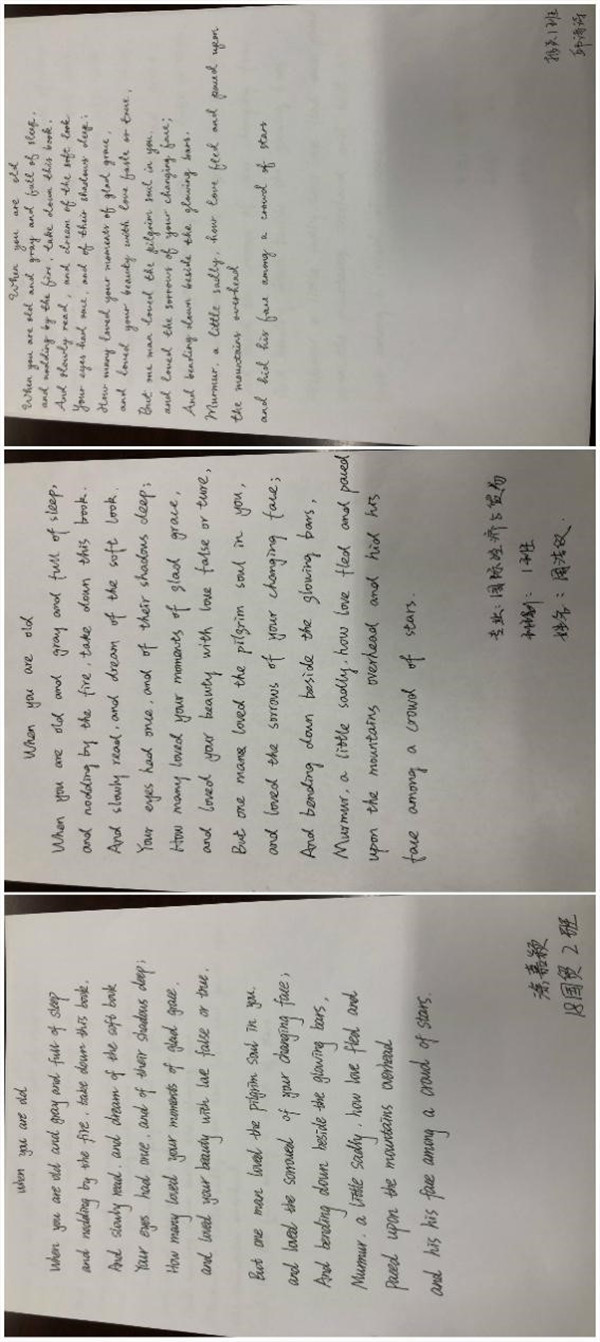 When you are old
When you are old and gray and full of sleep,
and nodding by the fire, take down this book.
And slowly read, and dream of the soft look
Your eyes had once, and of their shadows deep;
How many loved your moments of glad grace,
and loved your beauty with love fasle or ture,
But one man loved the pilgrim soul in you.
and loved the sorrows of your changing face;
And bending down beside the glowing bars.
Murmur, a little sadly, how love fled and paced upon
the mountains overhead
and hid his face among a crowd of stars
1班
When you are old
When you are old and gray and full of sleep,
and nodding by the fire, take down this book.
And slowly read, and dream of the soft look.
Your eyes had once, and of their shadows deep;
How many loved your moments of glad grace,
and loved your beauty with love false or ture,
But one mane loved the pilgrim soul in you,
and loved the sorrows of your changing face;
And bending down beside the glowing bars,
Murmur, a little sadly, how love fled and paced
upon the mountains overhead and hid his
face among a crowd of stars.
专业:国际经济与贸易
班别: 1班
姓名:周浩仪.
When you are old
When you are old and gray and full of sleep
and nodding by the fire, take down this book.
And slowly read, and dream of the soft book
Your eyes had once, and of their shadows deep;
How many loved your moments of glad grace.
and loved your beauty with love false or true.
But one man loved the pilgrim soul in you.
and loved the sorroued of your changing face;
And bending down beside the glowing bars,
Murmur, a little sadly, how love fled and
Paced upon the mountains overhead
and his his face among a crowd of stars.
嘉颖
18国贸2班